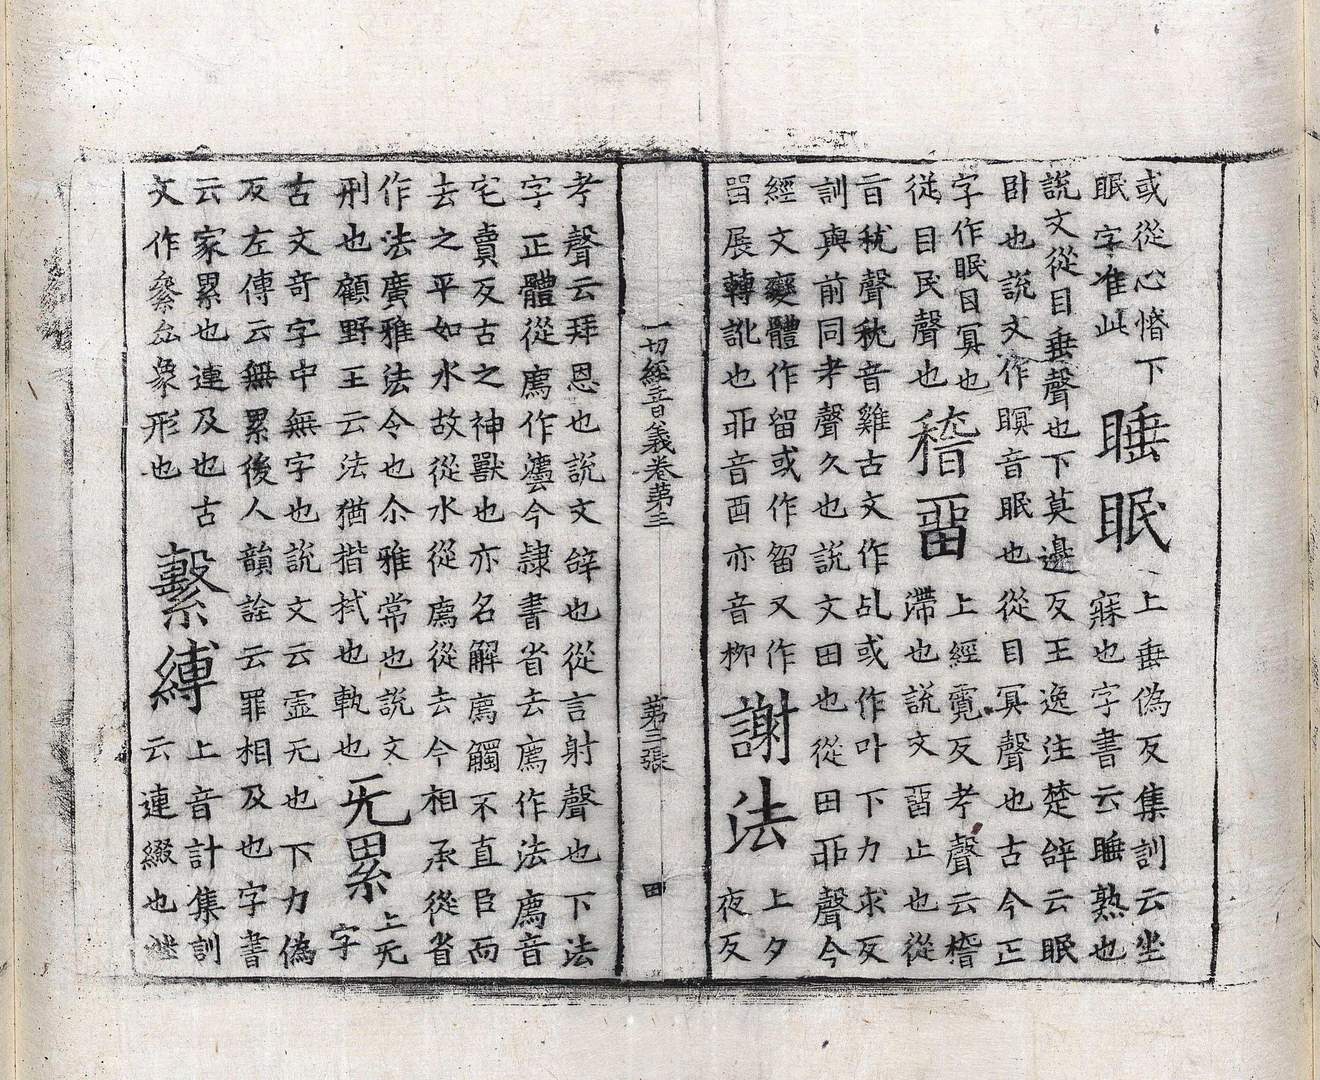 或從心惛下
眠字准此
睡眠
上垂偽反集訓云坐
寐也字書云睡熟也
說文從目垂聲也下莫邊反王逸注楚辝云眠
卧也說文作瞑音眠也從目冥聲也古今正
字作眠目冥也
從目民聲也
稽畱
上經霓反考聲云稽
滯也說文畱止也從
㫖秇聲秇音雞古文作乩或作卟下力求反
訓與前同考聲久也說文田也從田丣聲今
經文變體作留或作㽞又作
畱展轉訛也丣音酉亦音柳
謝法
上夕
夜反
一切經音義卷第三 第二張 田
考聲云拜恩也說文辝也從言射聲也下法
字正體從廌作灋今隸書省去廌作法廌音
宅賣反古之神獸也亦名解廌觸不直臣而
去之平如水故從水從廌從去今相承從省
作法廣雅法令也尒雅常也說文
刑也顧野王云法猶揩拭也軌也
无累
上无
字
古文奇字中無字也說文云虛无也下力偽
反左傳云無累後人韻詮云罪相及也字書
云家累也連及也古
文作絫厽象形也
繫縛
上音計集訓
云連綴也